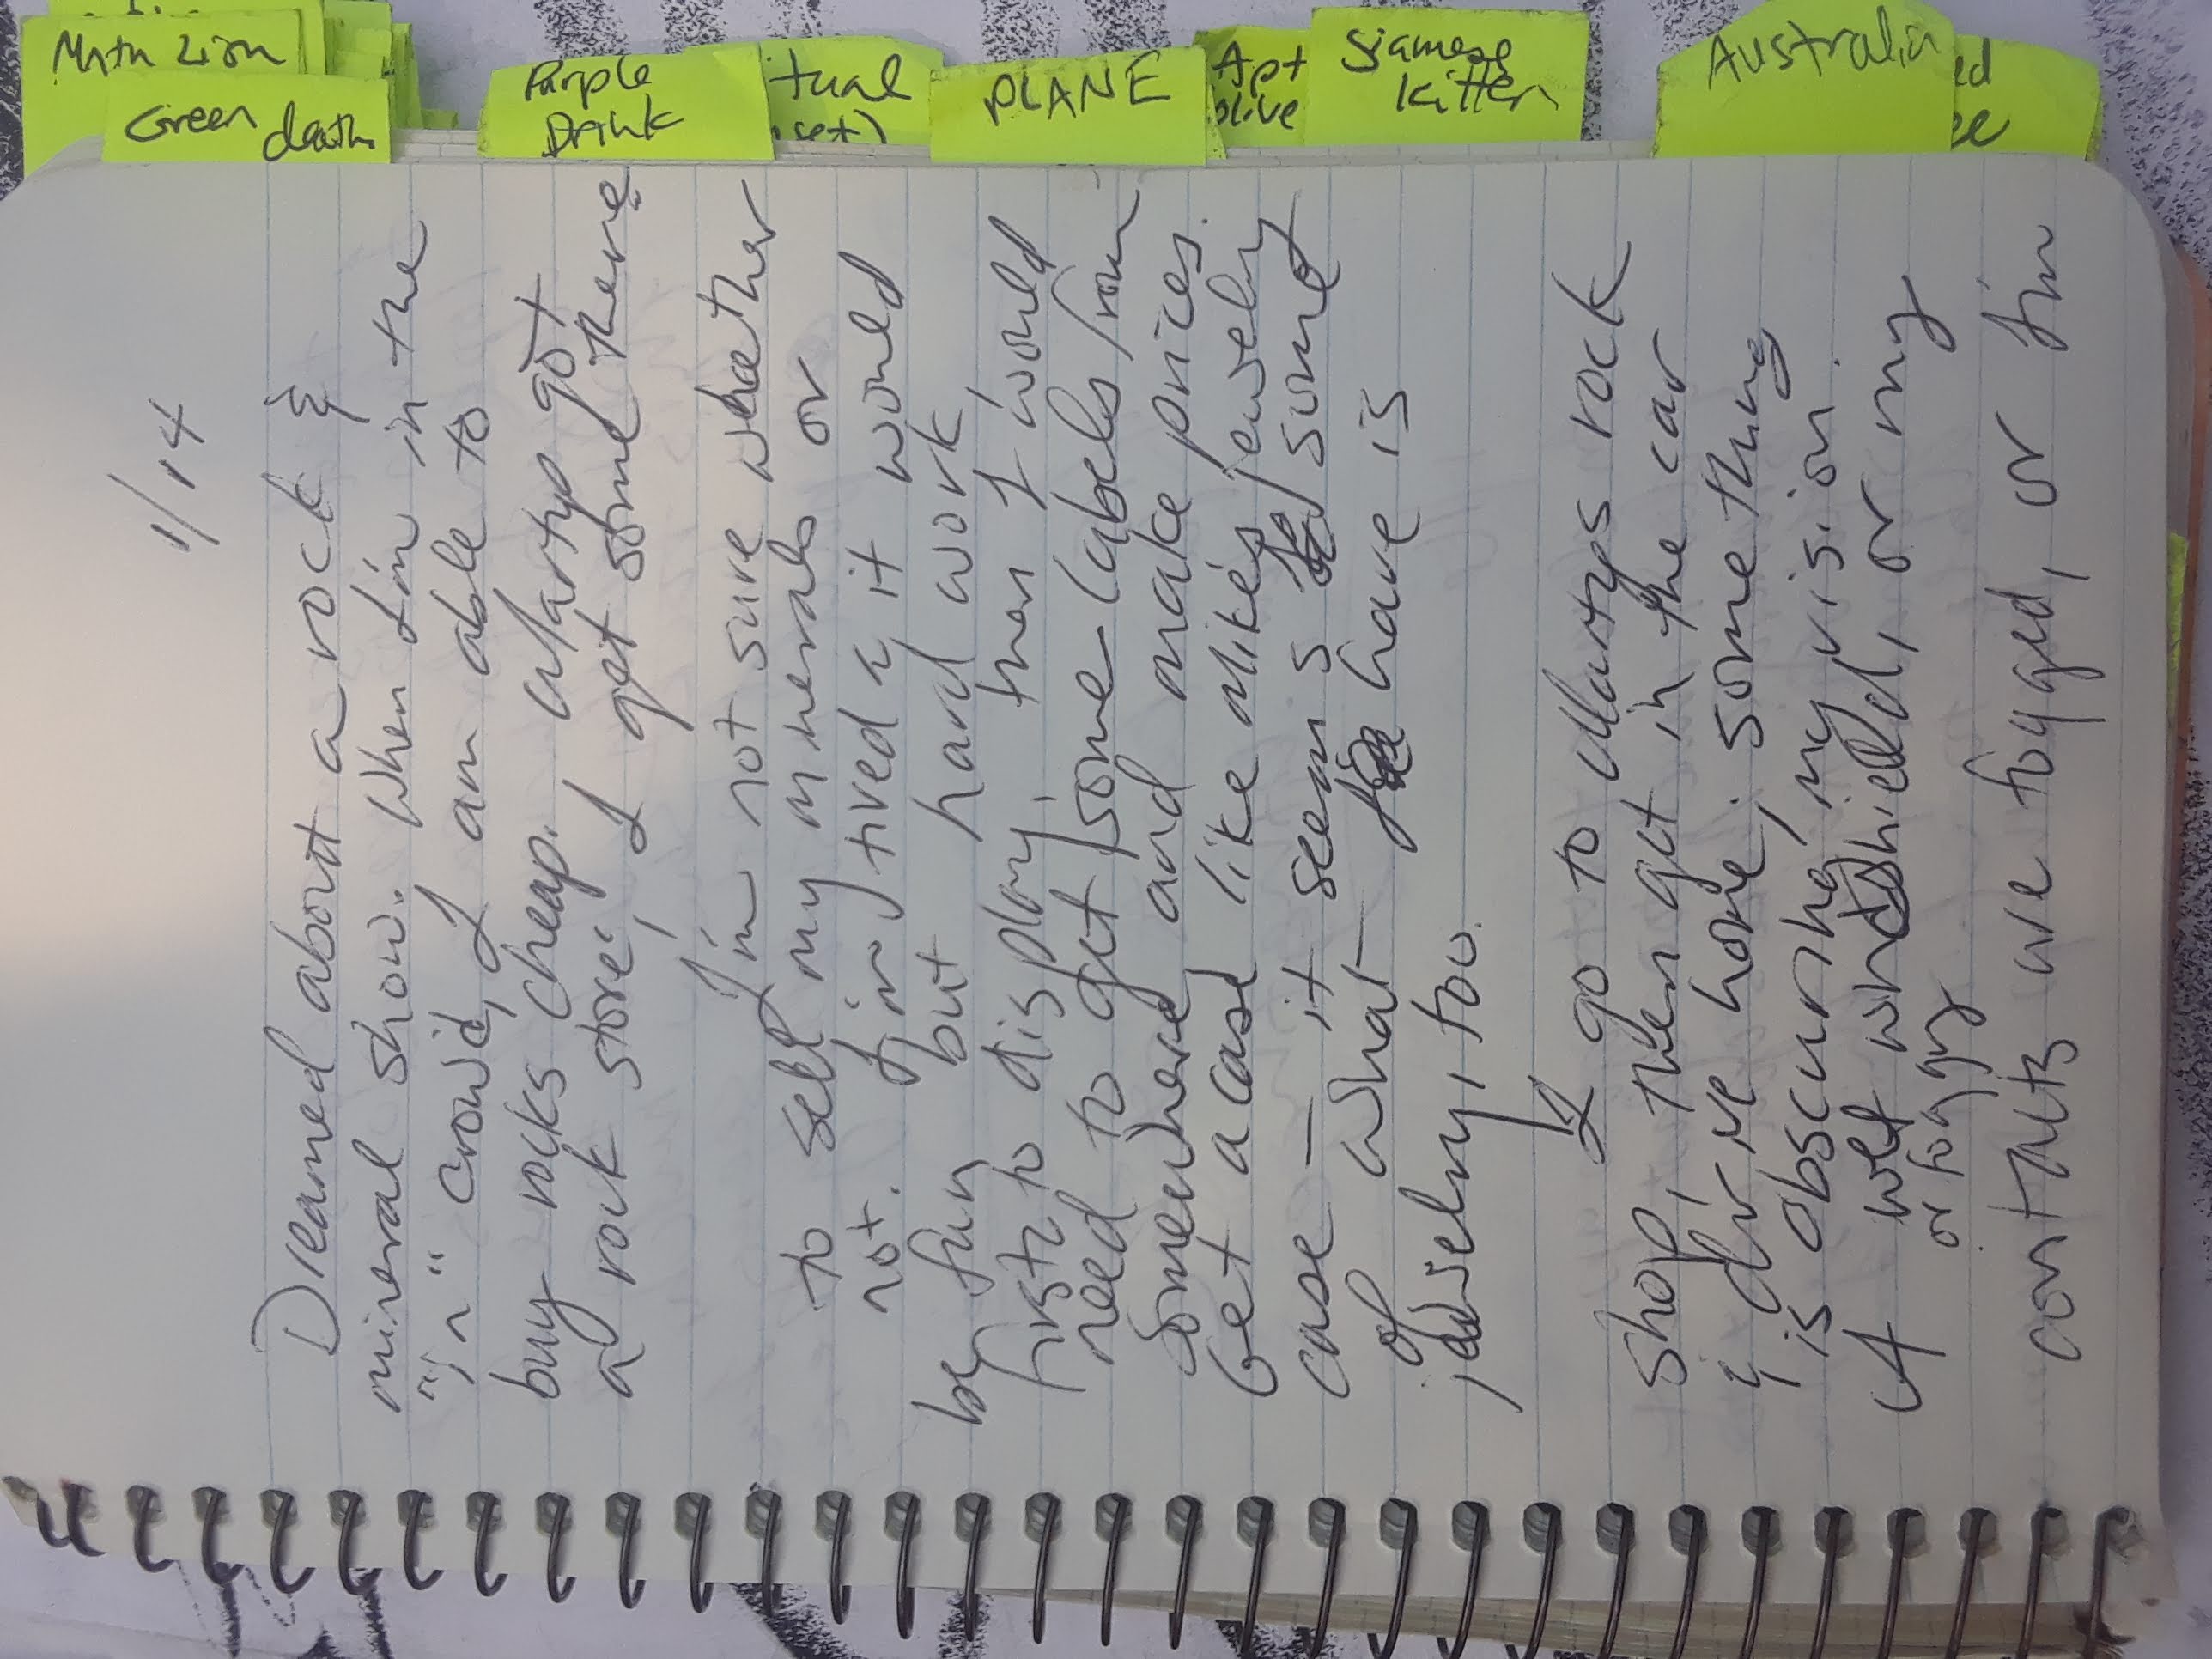 Math Lion
Green death
Purple
Drink
tual
PLANE
Apt
olive
Siamese
Kitten
Australia
1/14
Dreamed about a rock &
mineral show. When I'm in the
"in" crowd, I am able to
buy rocks cheap. Marty's got
a rock store, I get some there
I'm not sure whether
to sell my minerals or
not. I'm tired & it would
be fun but hard work
first to display, then I would
need to get some labels from
somewhere and make prices.
Get a case like Mike's jewelry
case — it seems some
of what have is
jewelry, too.
I go to Marty's rock
shop, then get in the car
& drive home. Something
is obscuring my vision.
A wet windshield, or my
or foggy
contacts are fogged, or I'm